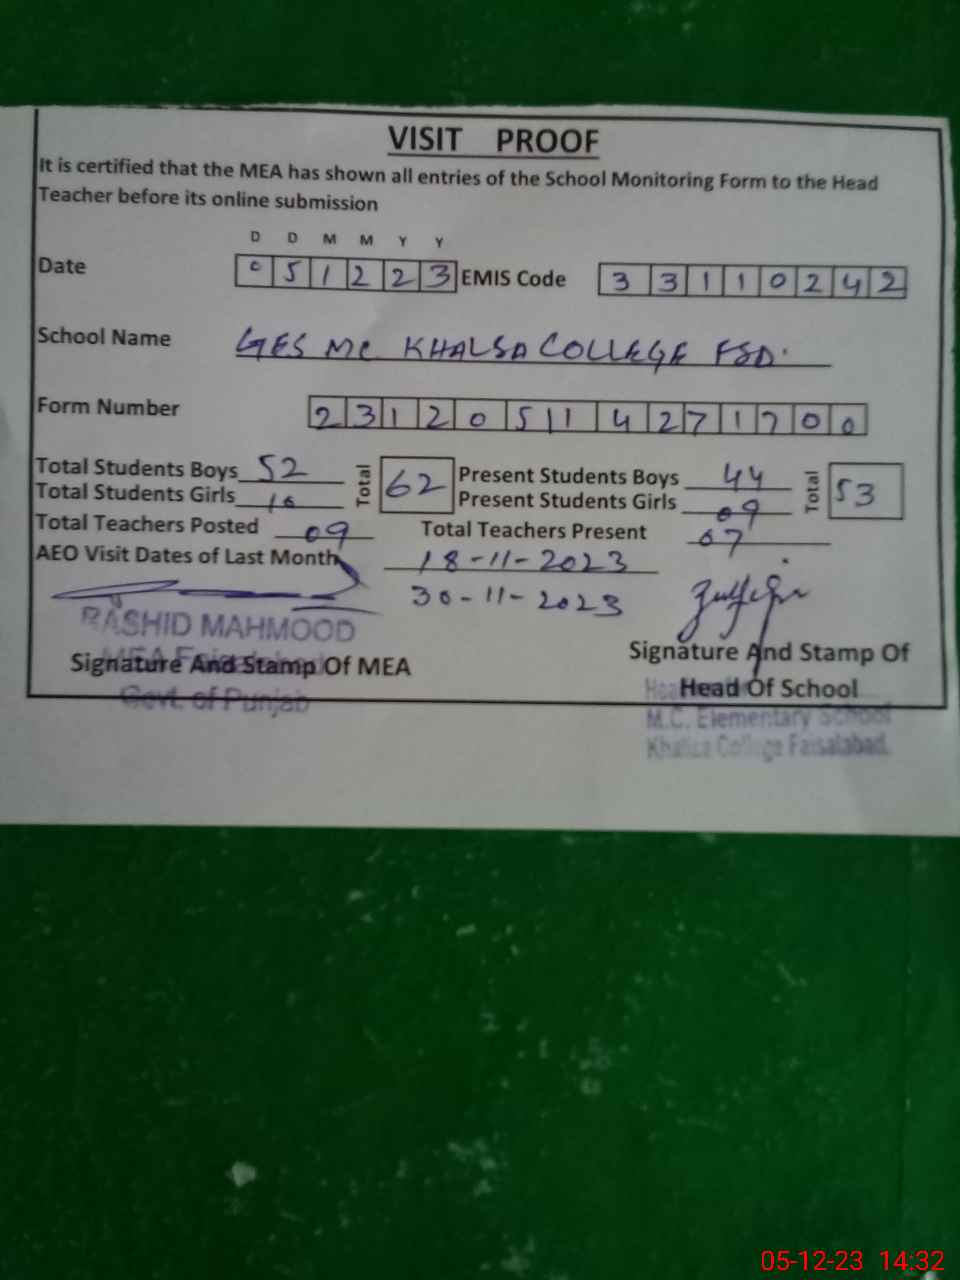 VISIT PROOF
It is certified that the MEA has shown all entries of the School Monitoring Form to the Head
Teacher before its online submission
D D M M Y Y
Date 0 5 1 2 2 3 EMIS Code 3 3 1 1 0 2 4 2
School Name GES MC KHALSA COLLEGE FSD.
Form Number 2 3 1 2 0 5 1 1 4 2 7 1 7 0 0
Total Students Boys 52 Total 62 Present Students Boys 44 Total 53
Total Students Girls 10 Present Students Girls 09
Total Teachers Posted 09 Total Teachers Present 07
AEO Visit Dates of Last Month 18-11-2023
30-11-2023
RASHID MAHMOOD
MEA
Signature And Stamp Of MEA
Govt. of Punjab
Signature And Stamp Of
Head Of School
M.C. Elementary School
Khalsa College Faisalabad.
05-12-23 14:32